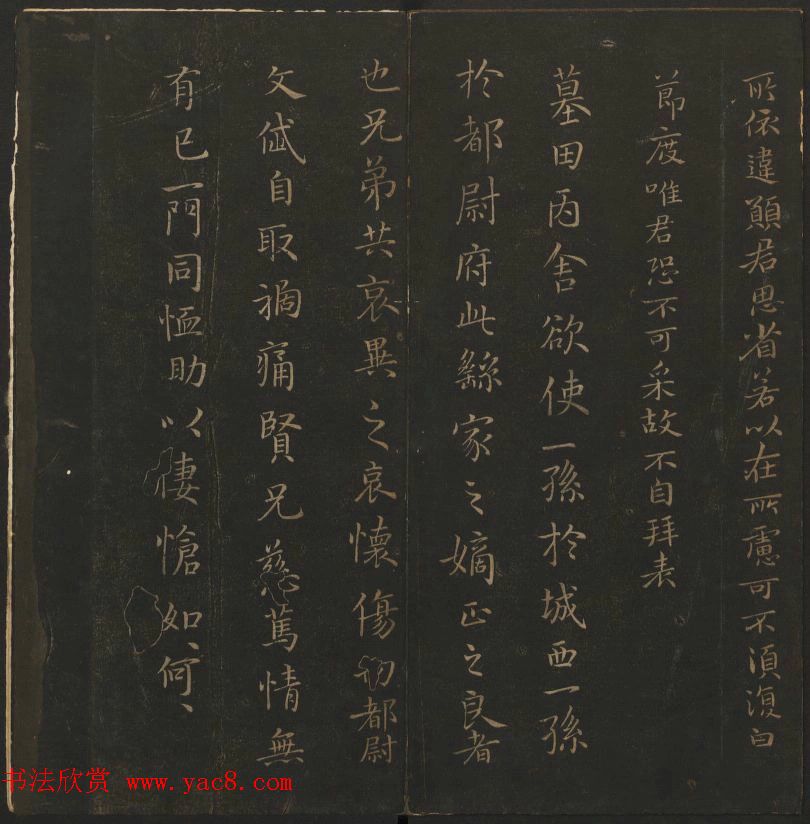 所依違願君思省若以在所慮可不須復白
節度唯君恐不可采故不自拜表
墓田丙舍欲使一孫於城西一孫
於都尉府此繇家之嫡正之良者
也兄弟共哀異之哀懷傷切都尉
文岱自取禍痛賢兄慈篤情無
有已一門同恤助以悽愴如、何、
书法欣赏 www.yac8.com